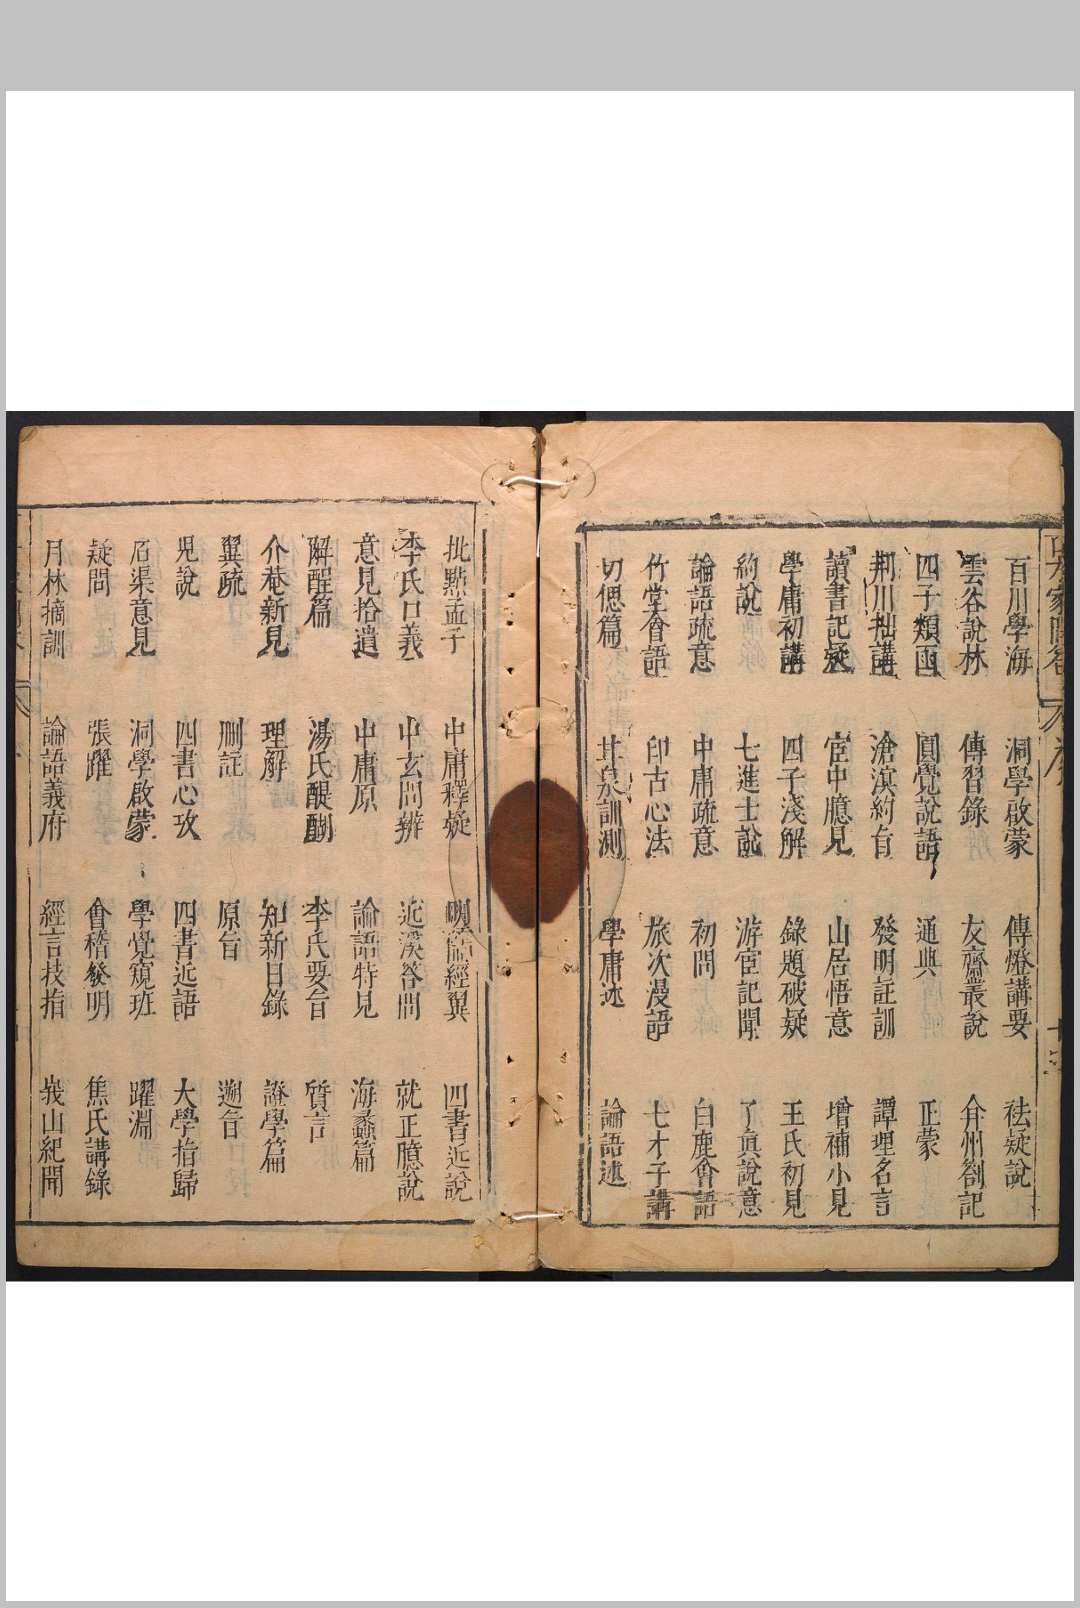 百川學海 洞學啟蒙 傳燈講要 祛疑說
雲谷說林 傳習錄 友齋叢說 弇州劄記
四子類函 圓覺說語 通典 正蒙
荆川拙講 滄溟約旨 發明註訓 譚理名言
讀書記疑 宦中臆見 山居悟意 增補小見
學庸初講 四子淺解 錄題破疑 王氏初見
約說 七進士說 游宦記聞 了真說意
論語疏意 中庸疏意 初問 白鹿會語
竹堂會語 印古心法 旅次漫語 七才子講
切偲篇 甘泉訓測 學庸述 論語述
批點孟子 中庸釋疑 經翼 四書近說
李氏口義 中玄問辨 近溪答問 就正臆說
意見拾遺 中庸原 論語特見 海蠡篇
解酲篇 湯氏醍醐 李氏要旨 質言
介菴新見 理解 知新日錄 證學篇
翼疏 刪註 原旨 遡旨
兒說 四書心攷 四書近語 大學指歸
石渠意見 洞學啟蒙 學覺窺班 躍淵
疑問 張躍 會稽發明 焦氏講錄
月林摘訓 論語義府 經言技指 峩山紀聞